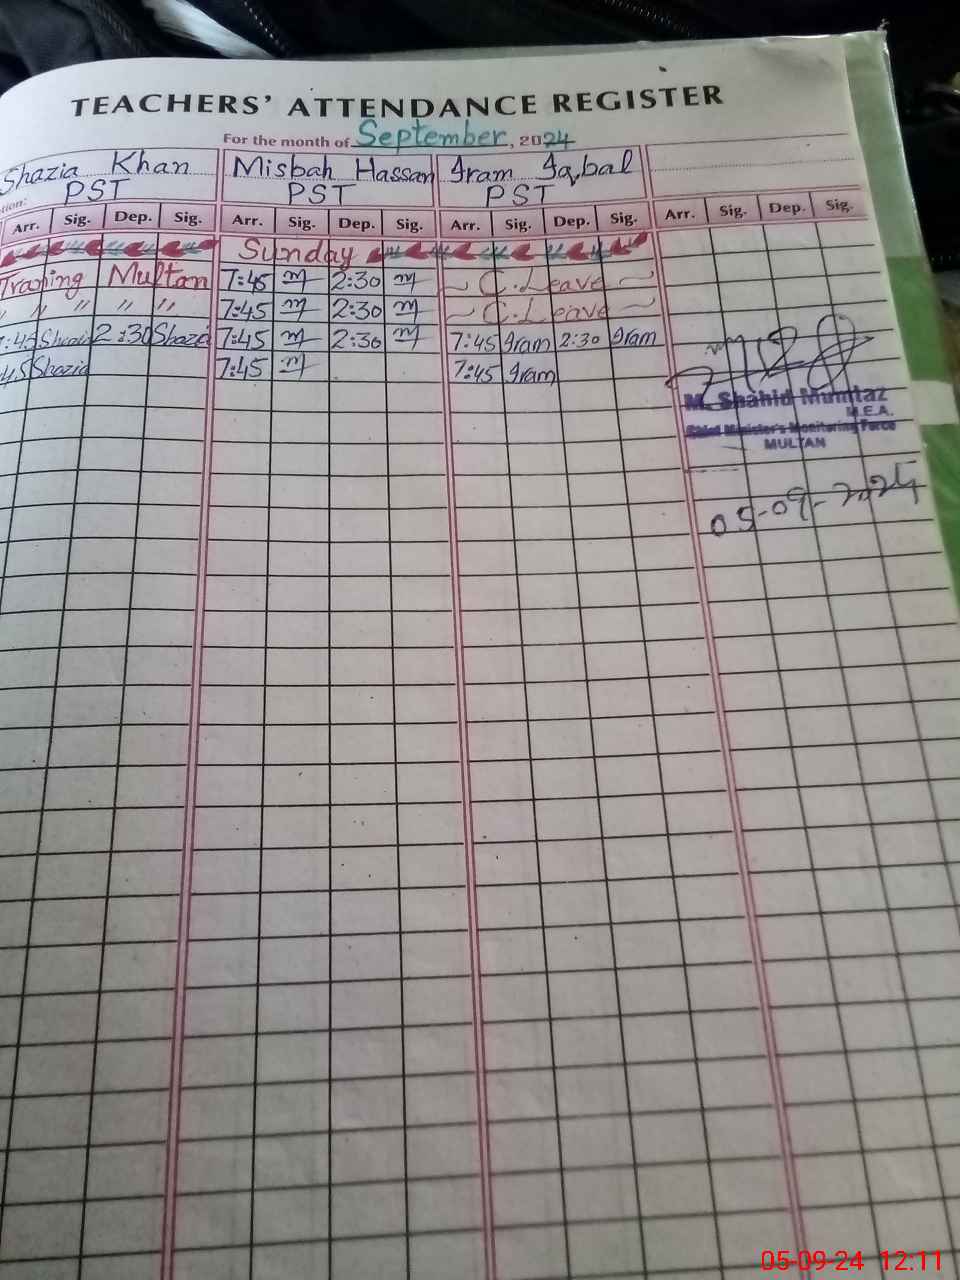 TEACHERS' ATTENDANCE REGISTER
For the month of September, 2024
Shazia Khan Misbah Hassan Iram Iqbal
PST PST PST
tion:
Arr. Sig. Dep. Sig. Arr. Sig. Dep. Sig. Arr. Sig. Dep. Sig. Arr. Sig. Dep. Sig.
Sunday
Training Multan 7:45 m 2:30 m ~ C.Leave ~
" " " " " 7:45 m 2:30 m ~ C.Leave ~
7:45 Shazia 2:30 Shazia 7:45 m 2:30 m 7:45 Iram 2:30 Iram
45 Shazia 7:45 m 7:45 Iram
M. Shahid Mumtaz
M.E.A.
Chief Minister's Monitoring Force
MULTAN
05-09-2024
05-09-24 12:11